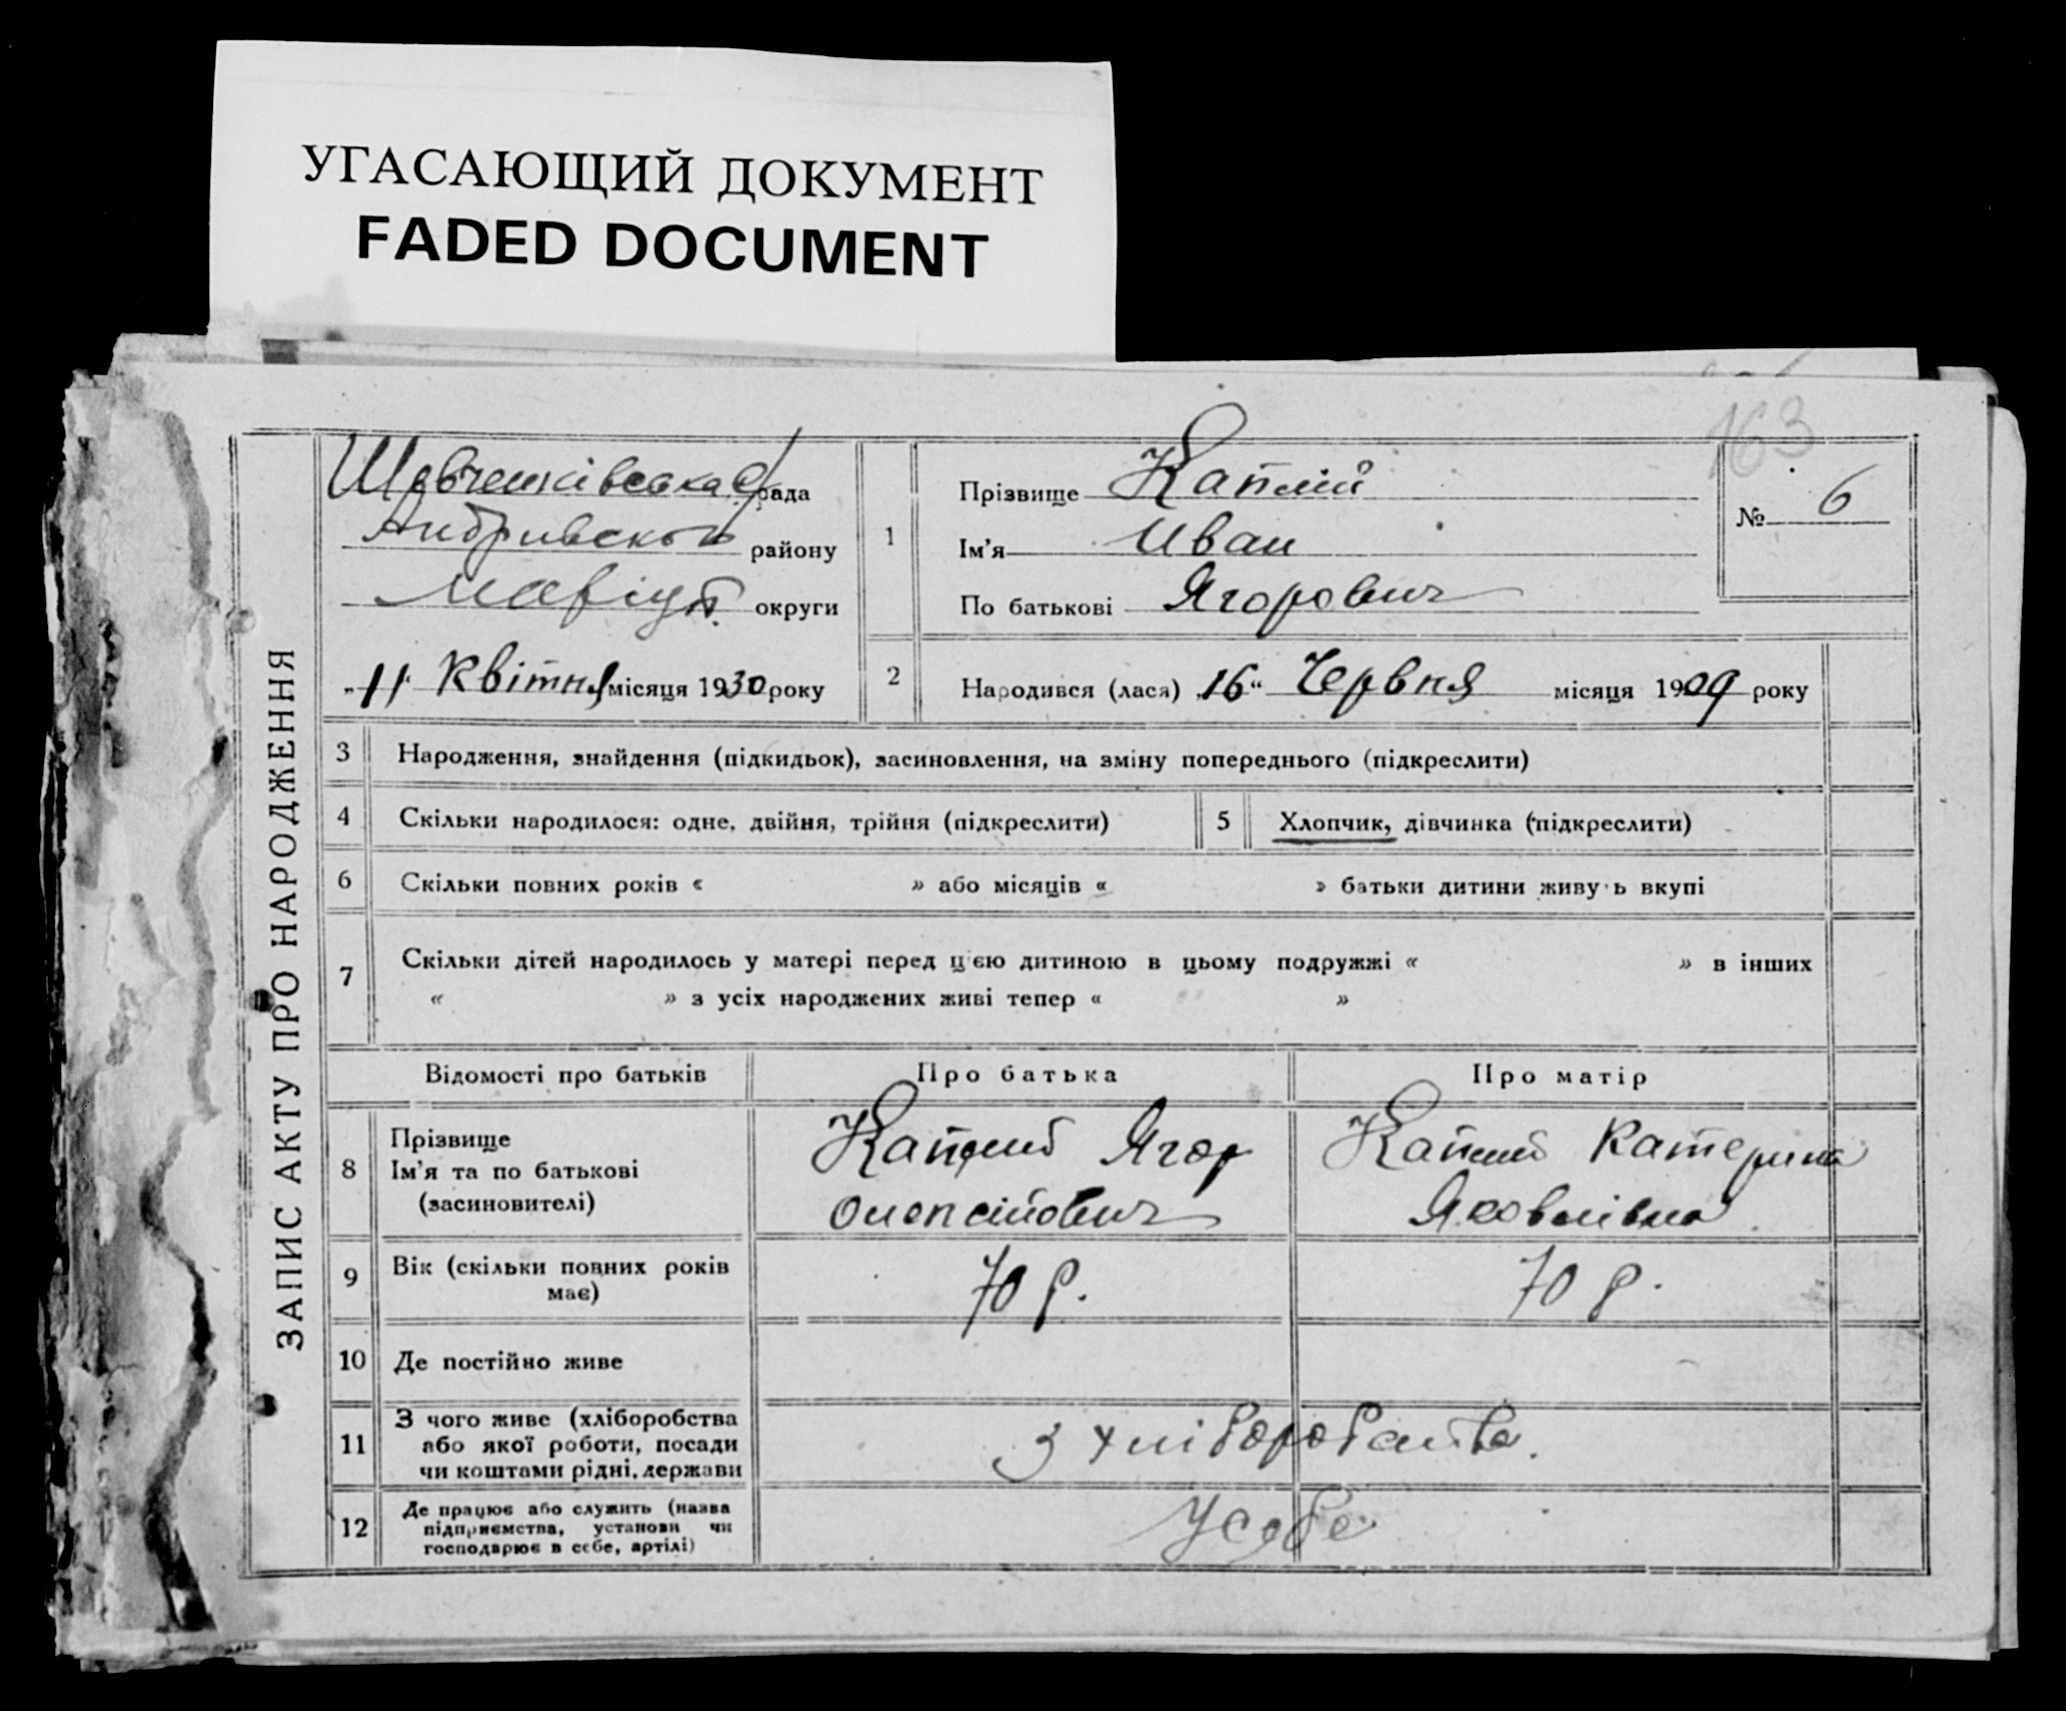 УГАСАЮЩИЙ ДОКУМЕНТ
FADED DOCUMENT
163
ЗАПИС АКТУ ПРО НАРОДЖЕННЯ
Шевченківська с/рада
району
Маріуп. округи
„11“ Квітня місяця 1930 року
1
Прізвище Каплій
Ім'я Иван
По батькові Ягорович
№ 6
2
Народився (лася) „16“ Червня місяця 1909 року
3 Народження, знайдення (підкидьок), засиновлення, на зміну попереднього (підкреслити)
4 Скільки народилося: одне, двійня, трійня (підкреслити)
5 Хлопчик, дівчинка (підкреслити)
6 Скільки повних років « » або місяців « » батьки дитини живуть вкупі
7 Скільки дітей народилось у матері перед цією дитиною в цьому подружжі « » в інших
« » з усіх народжених живі тепер « »
Відомості про батьків
Про батька
Про матір
8 Прізвище
Ім'я та по батькові
(засиновителі)
Каплий Ягор
Каплий Катерина
Яковлівна
9 Вік (скільки повних років
має)
70 р.
70 р.
10 Де постійно живе
11 З чого живе (хліборобства
або якої роботи, посади
чи коштами рідні, держави
З хліборобства.
12 Де працює або служить (назва
підприємства, установи чи
господарює в себе, артілі)
У себе